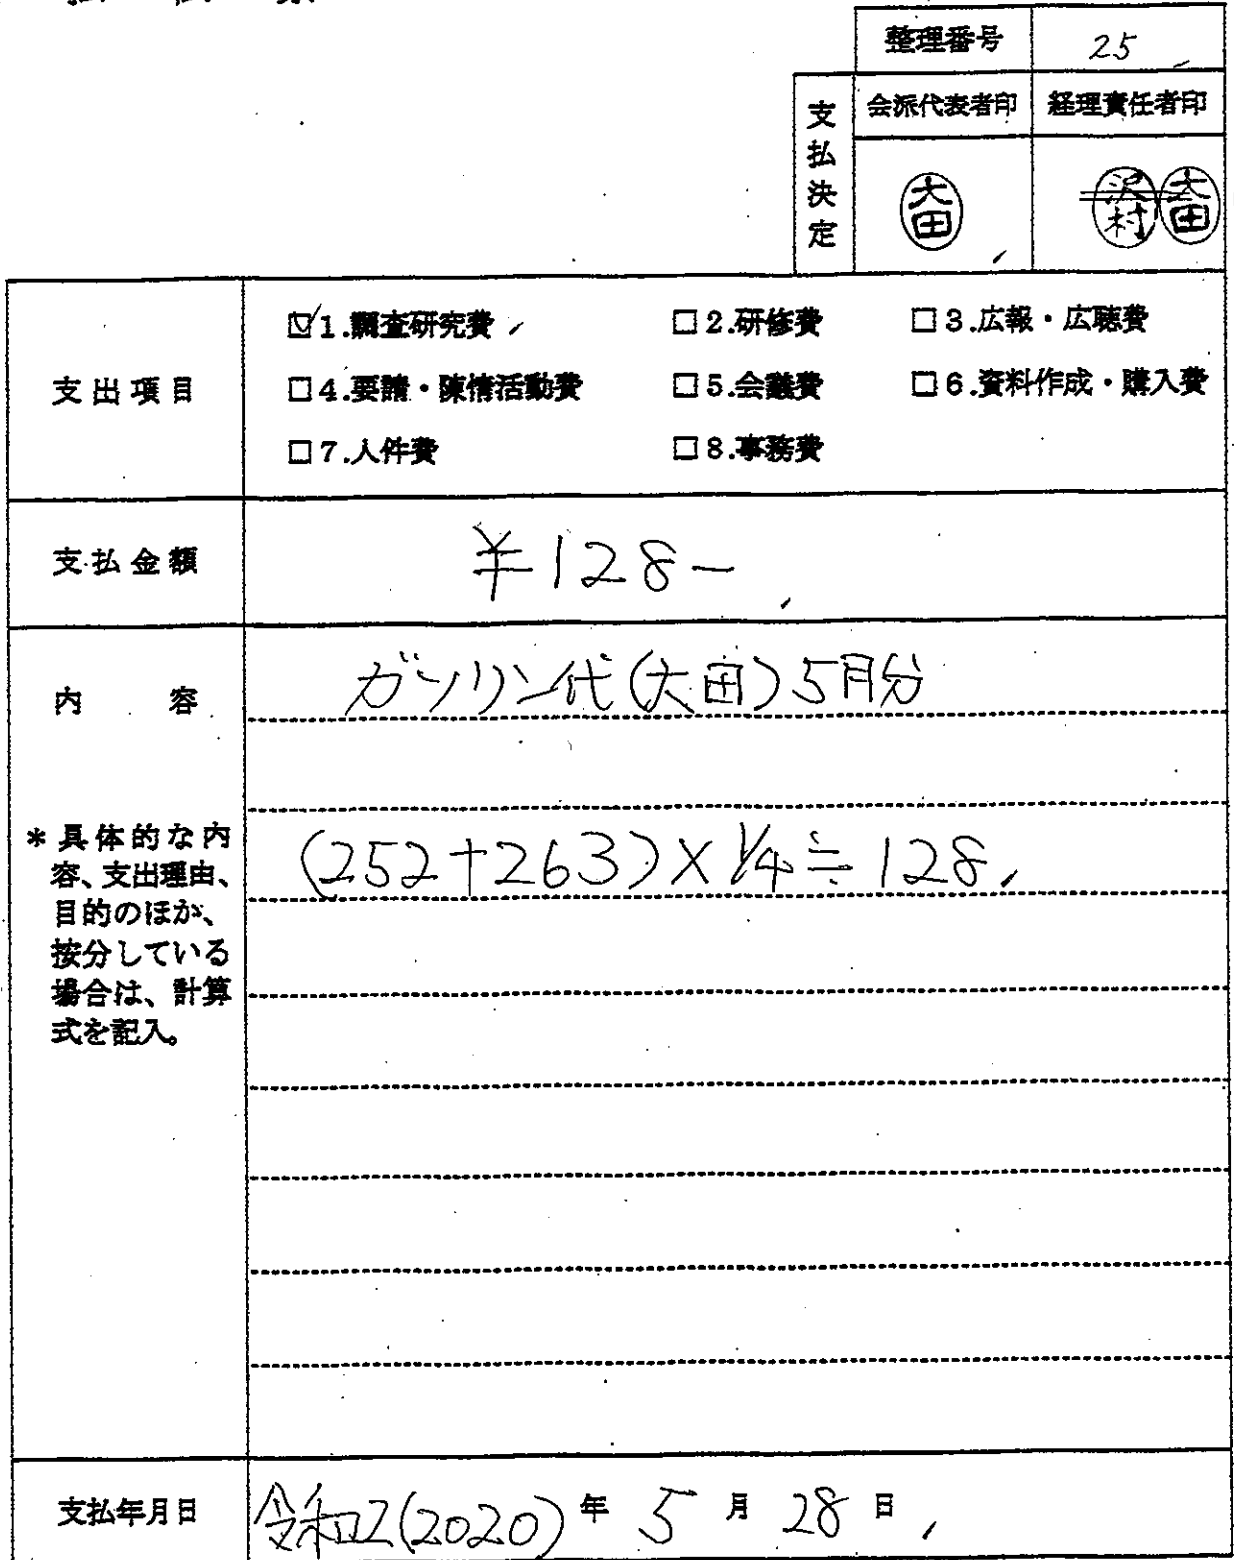 整理番号 25
支払決定 会派代表者印 経理責任者印
大田 沢村 大田
支出項目
☑1.調査研究費 □2.研修費 □3.広報・広聴費
□4.要請・陳情活動費 □5.会議費 □6.資料作成・購入費
□7.人件費 □8.事務費
支払金額 ¥128-
内容 ガソリン代(大田)5月分
*具体的な内容、支出理由、目的のほか、按分している場合は、計算式を記入。
(252+263)×1/4≒128
支払年月日 令和2(2020)年 5月 28日